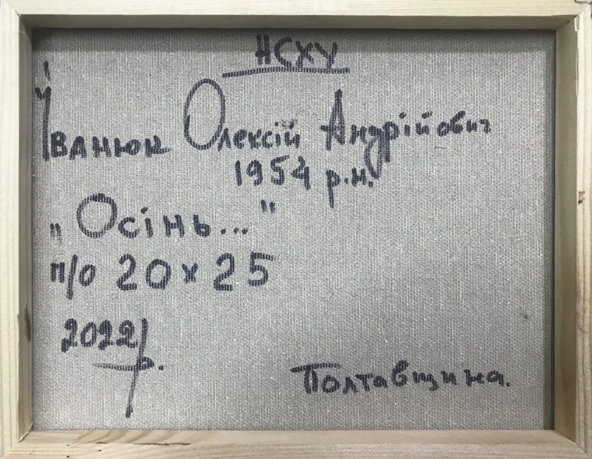 НСХУ
Іванюк Олексій Андрійович
1954 р.н.
„Осінь..."
п/о 20х25
2022 р.
Полтавщина.